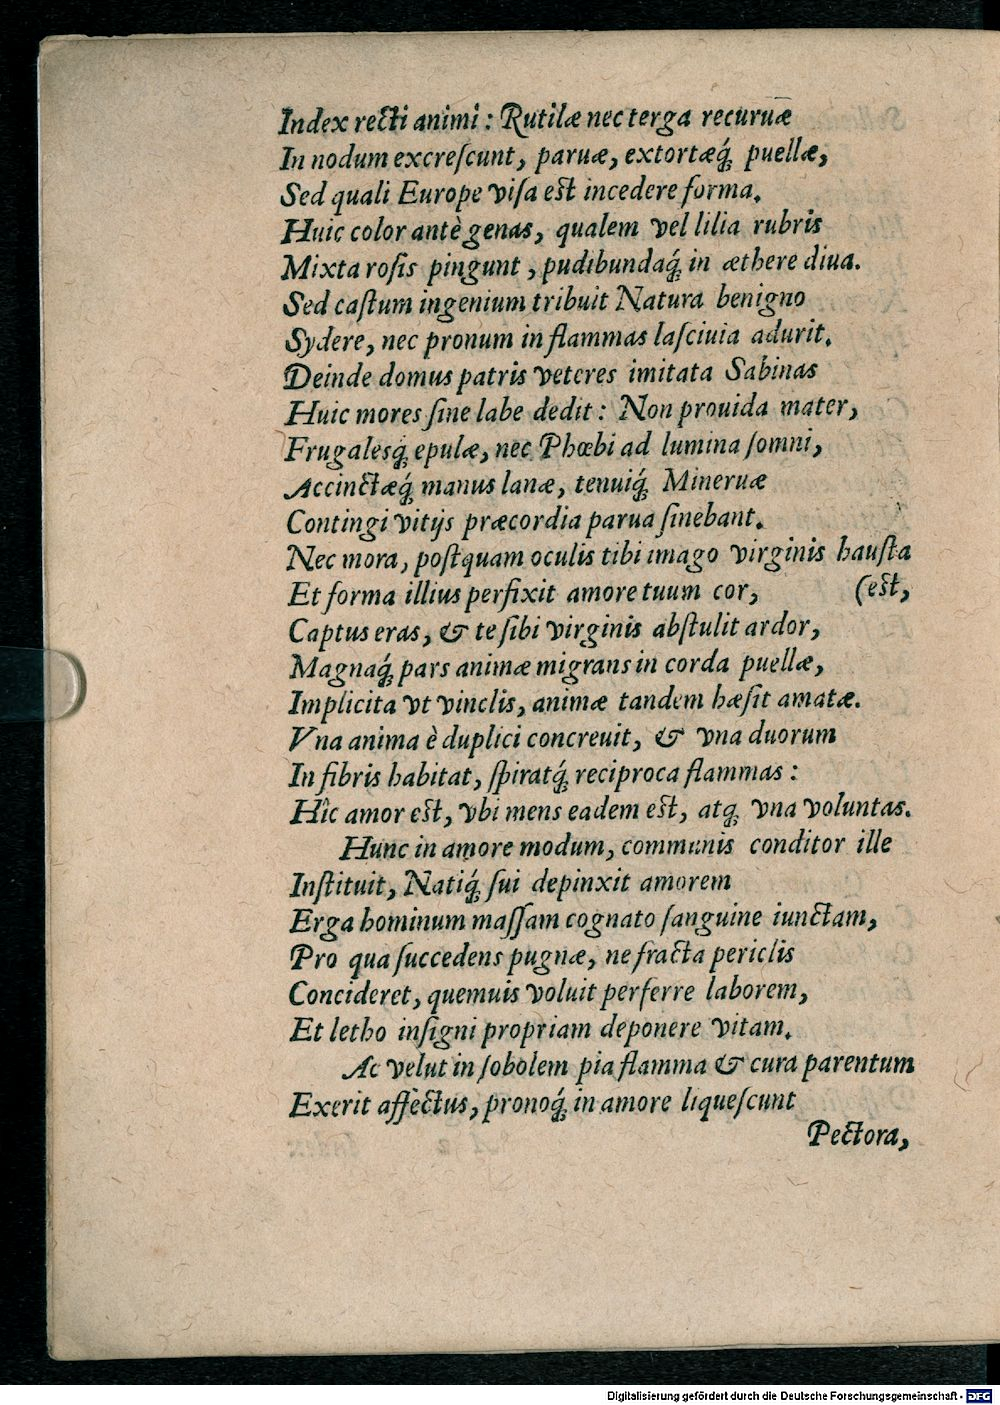 Index recti animi: Rutilæ nec terga recuruæ
In nodum excreſcunt, paruæ, extortæq́; puellæ,
Sed quali Europe viſa est incedere forma.
Huic color antè genas, qualem vel lilia rubris
Mixta roſis pingunt, pudibundaq́; in æthere diua.
Sed caſtum ingenium tribuit Natura benigno
Sydere, nec pronum in flammas laſciuia adurit.
Deinde domus patris veteres imitata Sabinas
Huic mores ſine labe dedit: Non prouida mater,
Frugalesq́; epulæ, nec Phœbi ad lumina ſomni,
Accinctæq́; manus lanæ, tenuiq́; Mineruæ
Contingi vitijs præcordia parua ſinebant.
Nec mora, poſtquam oculis tibi imago virginis hauſta
Et forma illius perfixit amore tuum cor, (est,
Captus eras, & te ſibi virginis abſtulit ardor,
Magnaq́; pars animæ migrans in corda puellæ,
Implicita vt vinclis, animæ tandem hæſit amatæ.
Vna anima è duplici concreuit, & vna duorum
In fibris habitat, ſpiratq́; reciproca flammas:
Hîc amor est, vbi mens eadem est, atq; vna voluntas.
Hunc in amore modum, communis conditor ille
Inſtituit, Natiq́; ſui depinxit amorem
Erga hominum maſſam cognato ſanguine iunctam,
Pro qua ſuccedens pugnæ, ne fracta periclis
Concideret, quemuis voluit perferre laborem,
Et letho inſigni propriam deponere vitam.
Ac velut in ſobolem pia flamma & cura parentum
Exerit affectus, pronoq́; in amore liqueſcunt
Pectora,
Digitalisierung gefördert durch die Deutsche Forschungsgemeinschaft - DFG